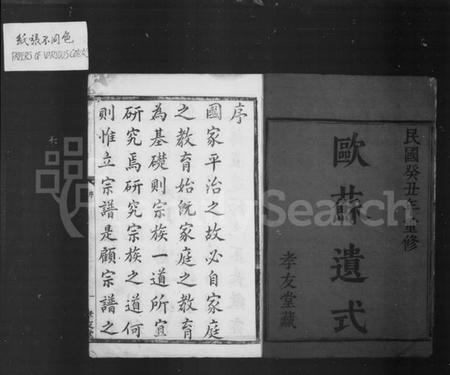 紙張不同色
PAPERS OF VARIOUS COLORS
民國癸丑年重修
歐蘇遺式
孝友堂藏
序
國家平治之故必自家庭
之教育始旣家庭之教育
為基礎則宗族一道所宜
研究焉研究宗族之道何
則惟立宗譜是顧宗譜之
序
一
MySearch